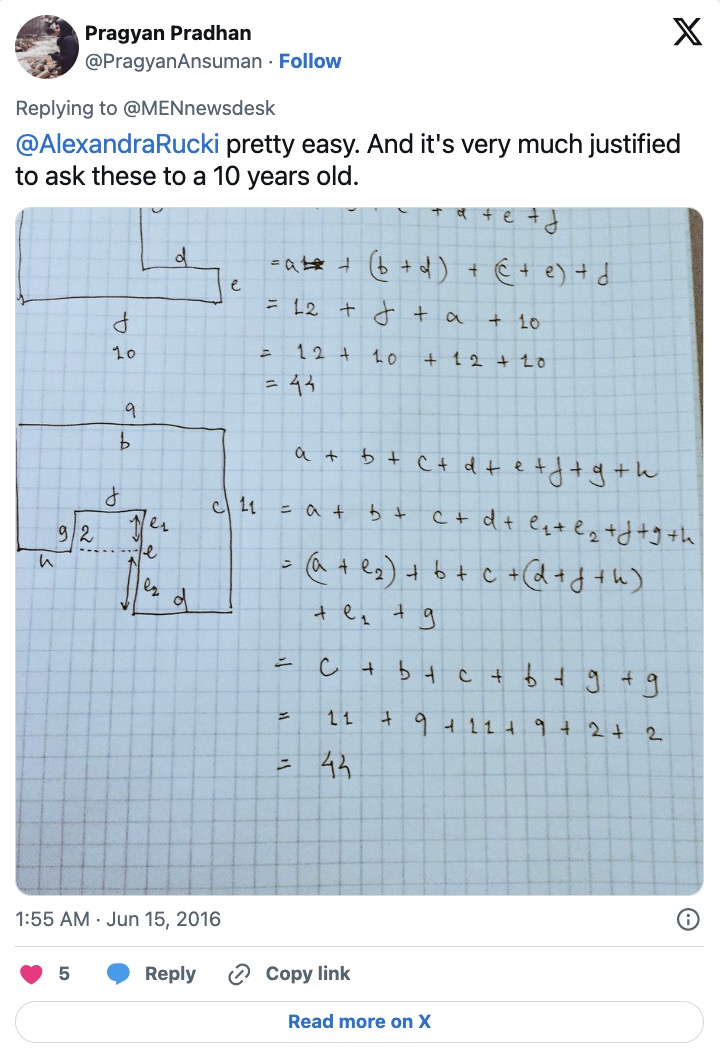 Pragyan Pradhan
@PragyanAnsuman · Follow
Replying to @MENnewsdesk
@AlexandraRucki pretty easy. And it's very much justified
to ask these to a 10 years old.
+ d + e + f
d
= a + (b + d) + (c + e) + f
e
= 12 + f + a + 10
f
10
= 12 + 10 + 12 + 10
= 44
9
b
a + b + c + d + e + f + g + h
f
c 11
= a + b + c + d + e₁ + e₂ + f + g + h
g 2
e₁
e
h
= (a + e₂) + b + c + (d + f + h)
e₂
d
+ e₁ + g
= c + b + c + b + g + g
= 11 + 9 + 11 + 9 + 2 + 2
= 44
1:55 AM · Jun 15, 2016
5 Reply Copy link
Read more on X